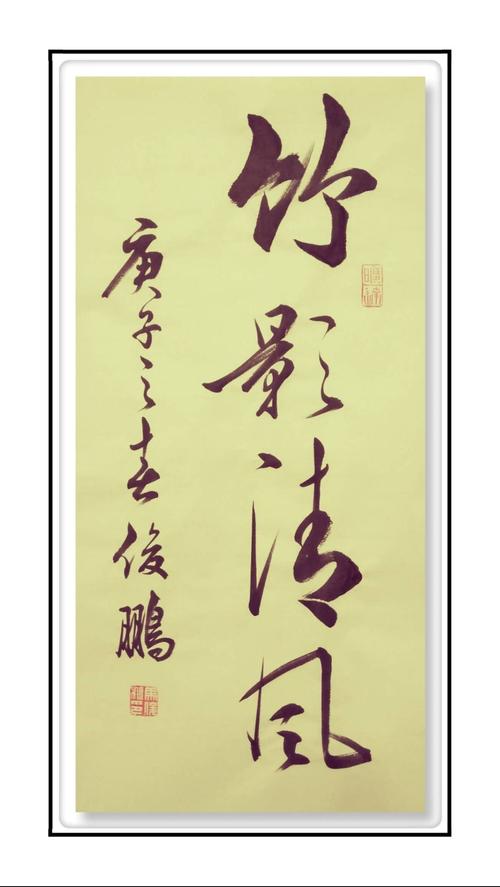 竹影清风
庚子之春俊鹏